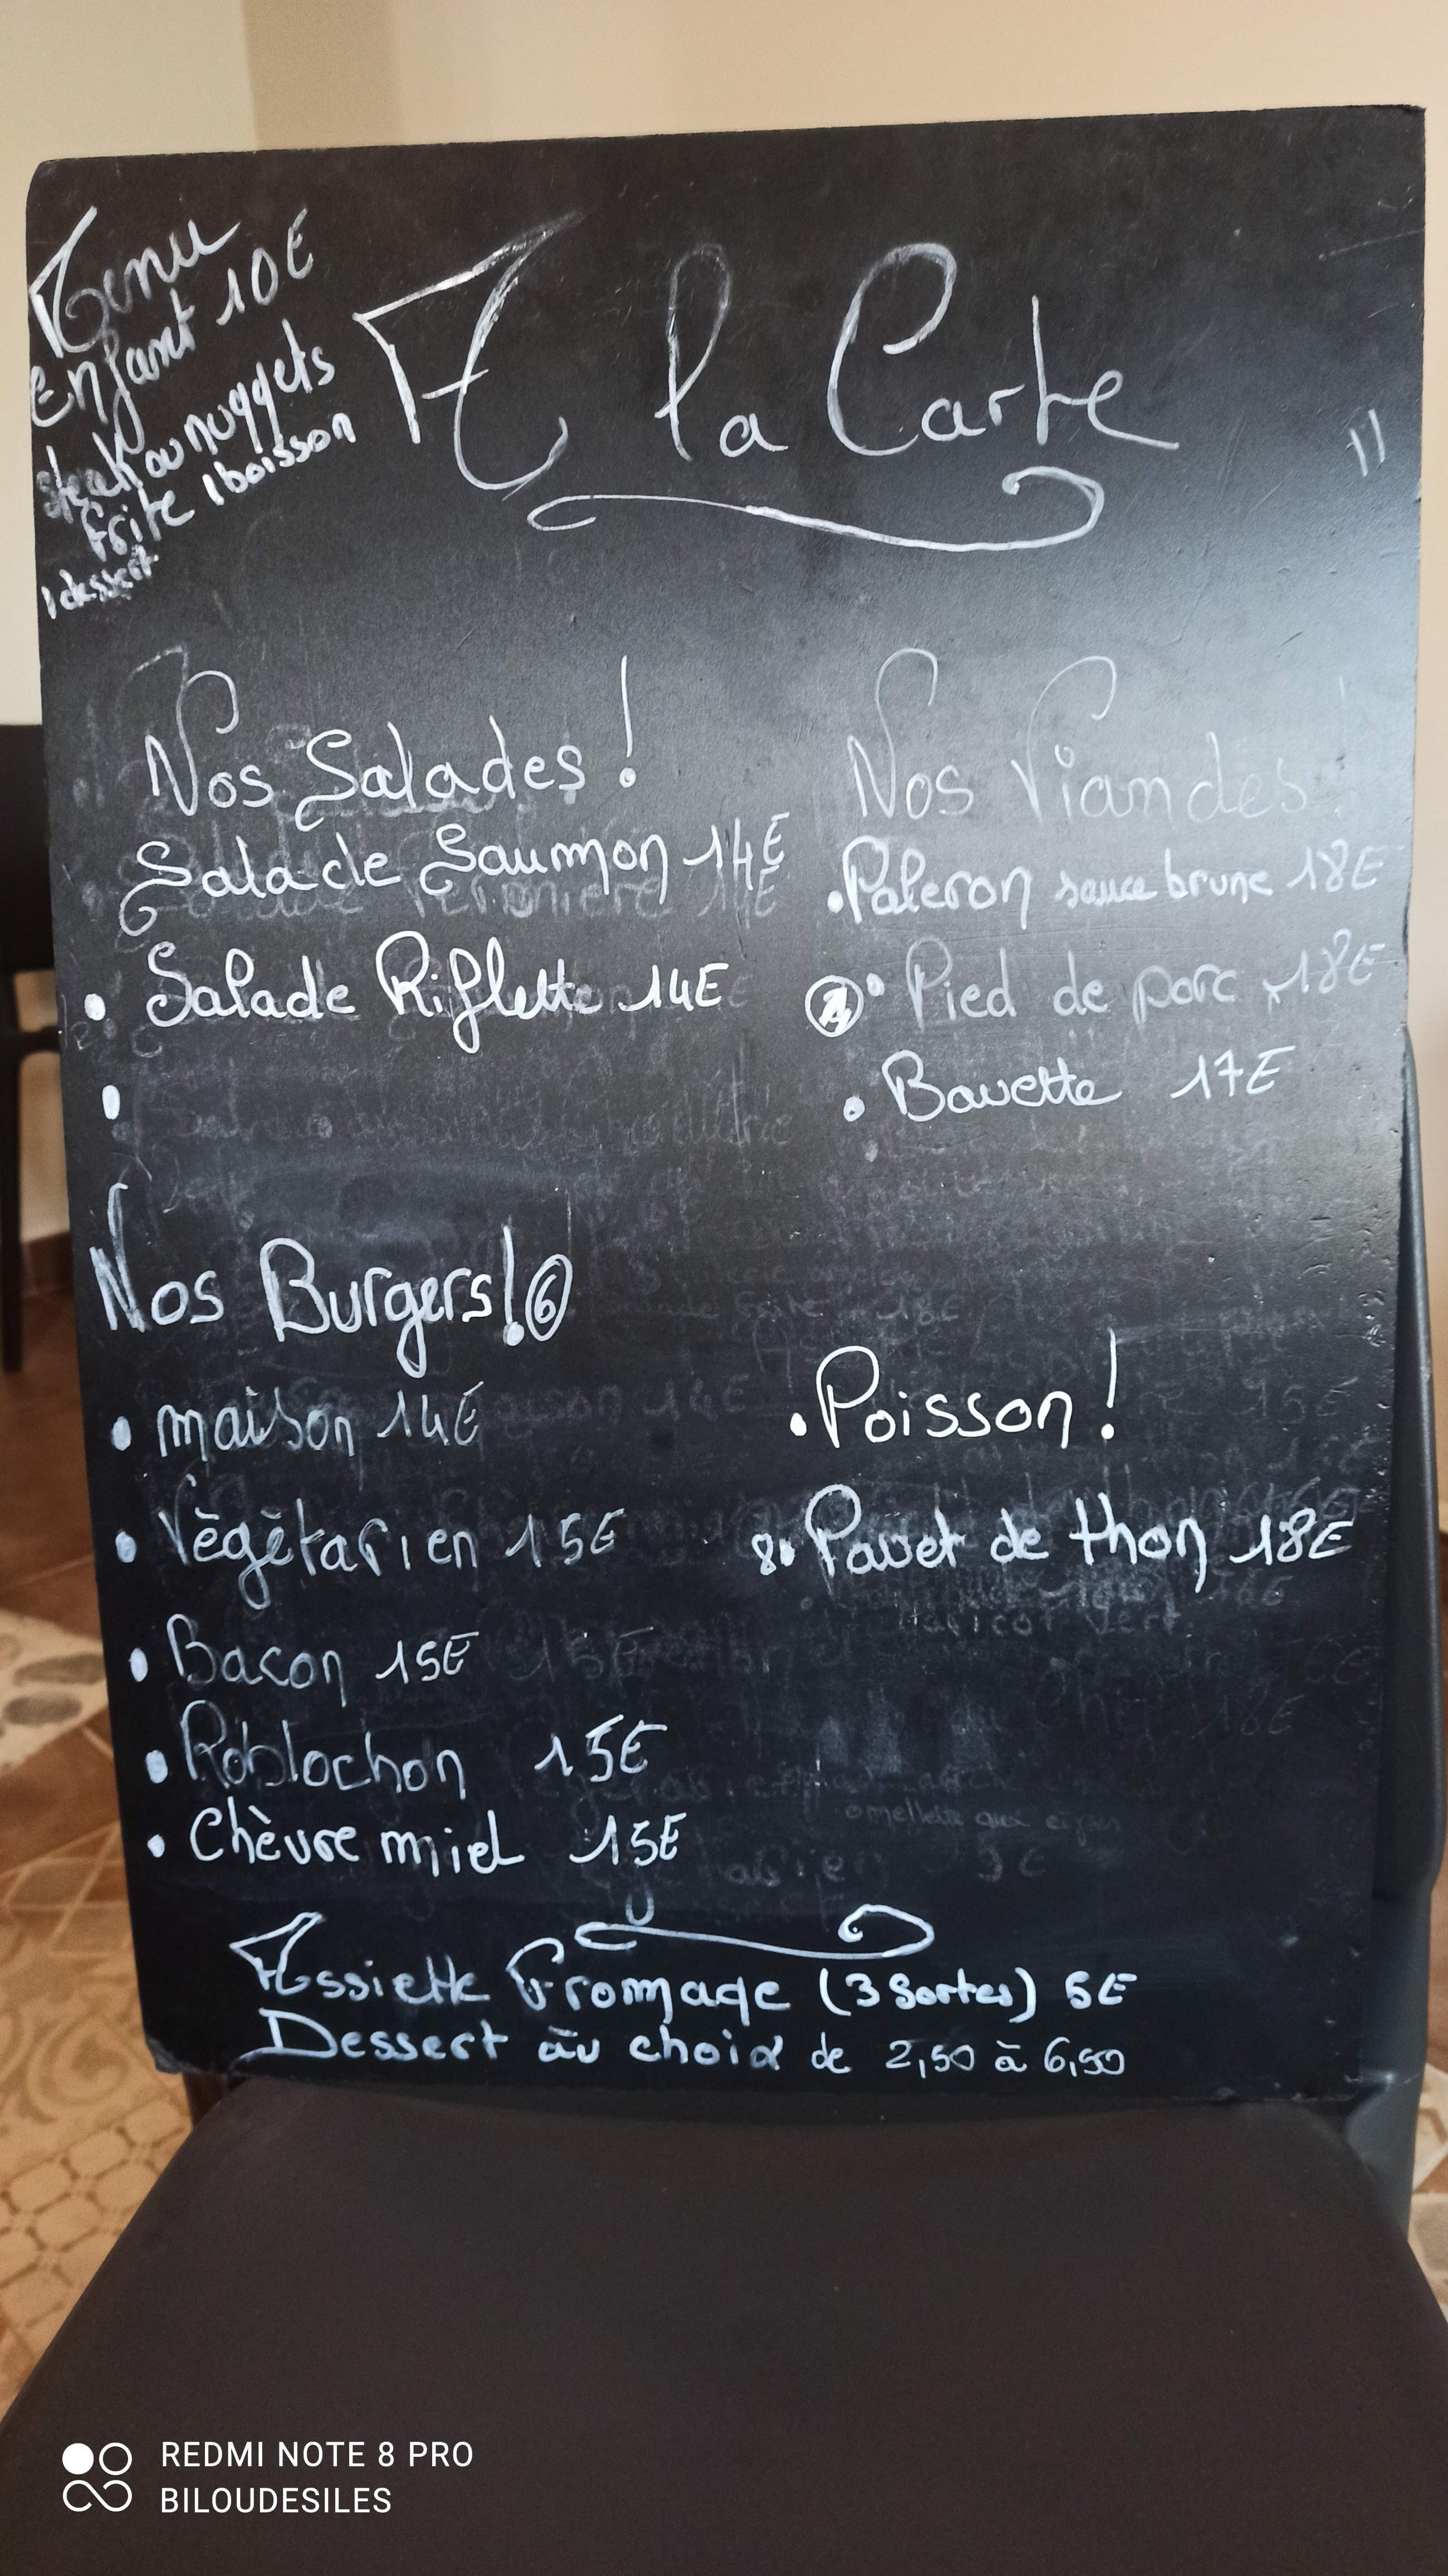 Menu
Enfant 10E
steak ou nuggets
frite 1 boisson
1 dessert
A la Carte
11
Nos Salades !
Salade Saumon 14E
• Salade Riflette 14E
•
Nos Viandes !
• Paleron sauce brune 18E
• Pied de porc 18E
• Bavette 17E
Nos Burgers! 6
• maison 14E
• Vègètarien 15E
• Bacon 15E
• Roblochon 15E
• Chèvre miel 15E
• Poisson !
8 • Pavet de thon 18E
Haricot vert
omellette aux
Assiette Fromage (3 Sortes) 5E
Dessert au choix de 2,50 à 6,50
REDMI NOTE 8 PRO
BILOUDESILES